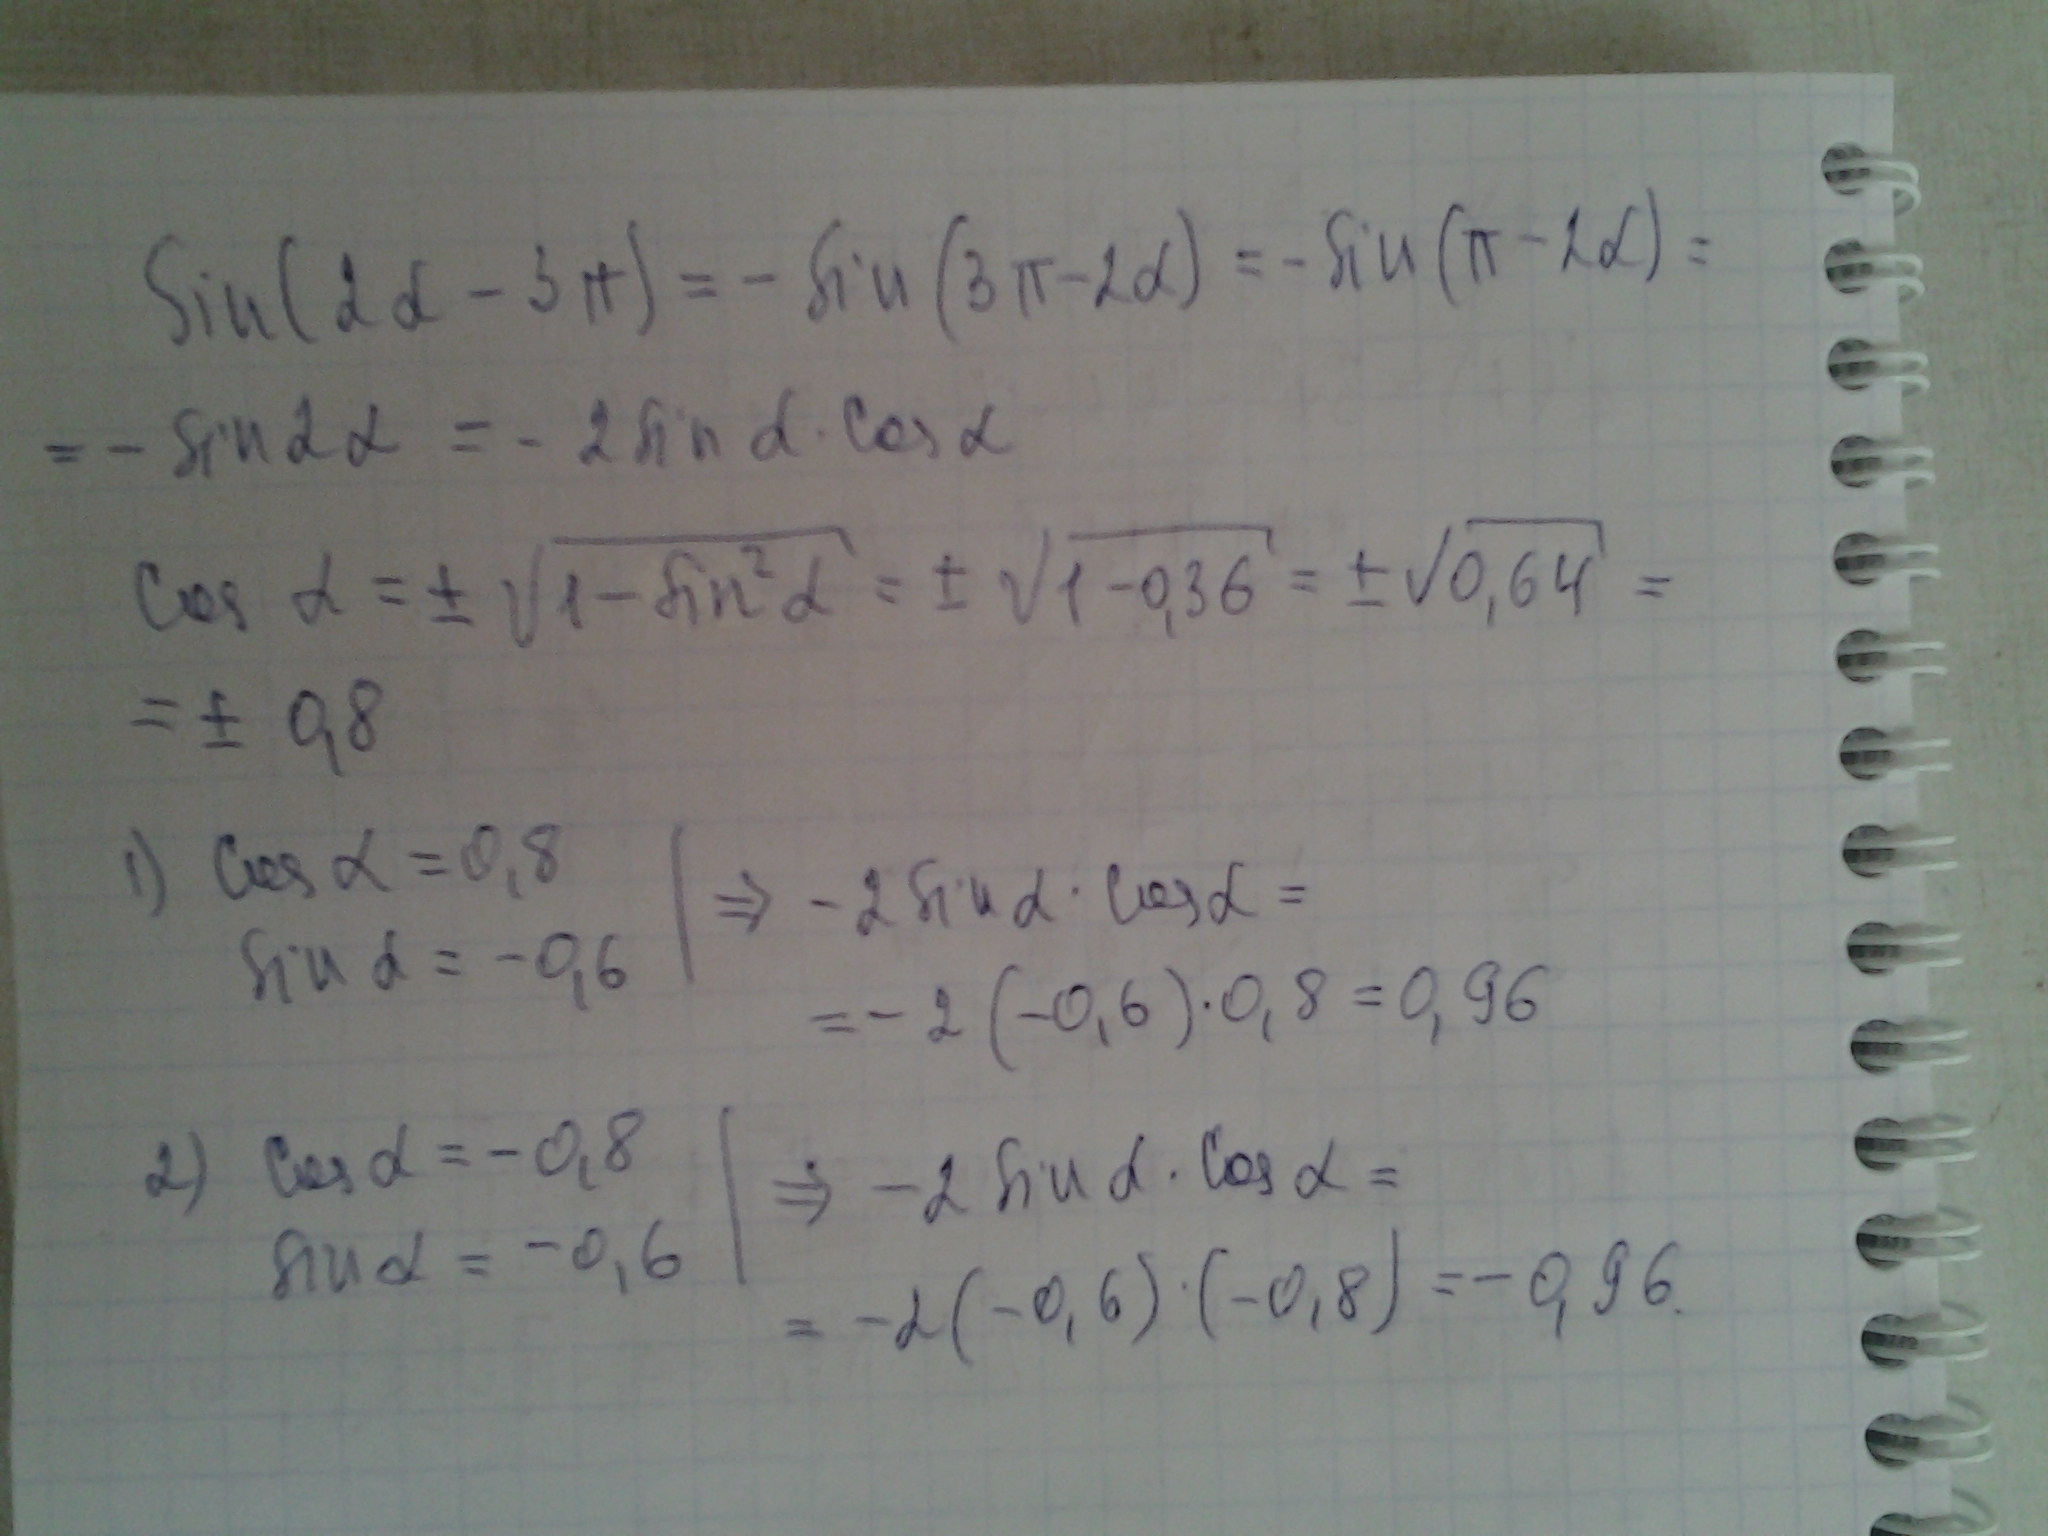 Sin(2α - 3π) = - Sin(3π - 2α) = - Sin(π - 2α) =
= - Sin2α = - 2Sin α · Cos α
Cos α = ± √1 - Sin²α = ± √1 - 0,36 = ± √0,64 =
= ± 0,8
1) Cos α = 0,8 | ⇒ - 2 Sin α · Cos α =
Sin α = - 0,6 | = - 2 (-0,6) · 0,8 = 0,96
2) Cos α = - 0,8 | ⇒ - 2 Sin α · Cos α =
Sin α = - 0,6 | = - 2 (-0,6) · (-0,8) = - 0,96.